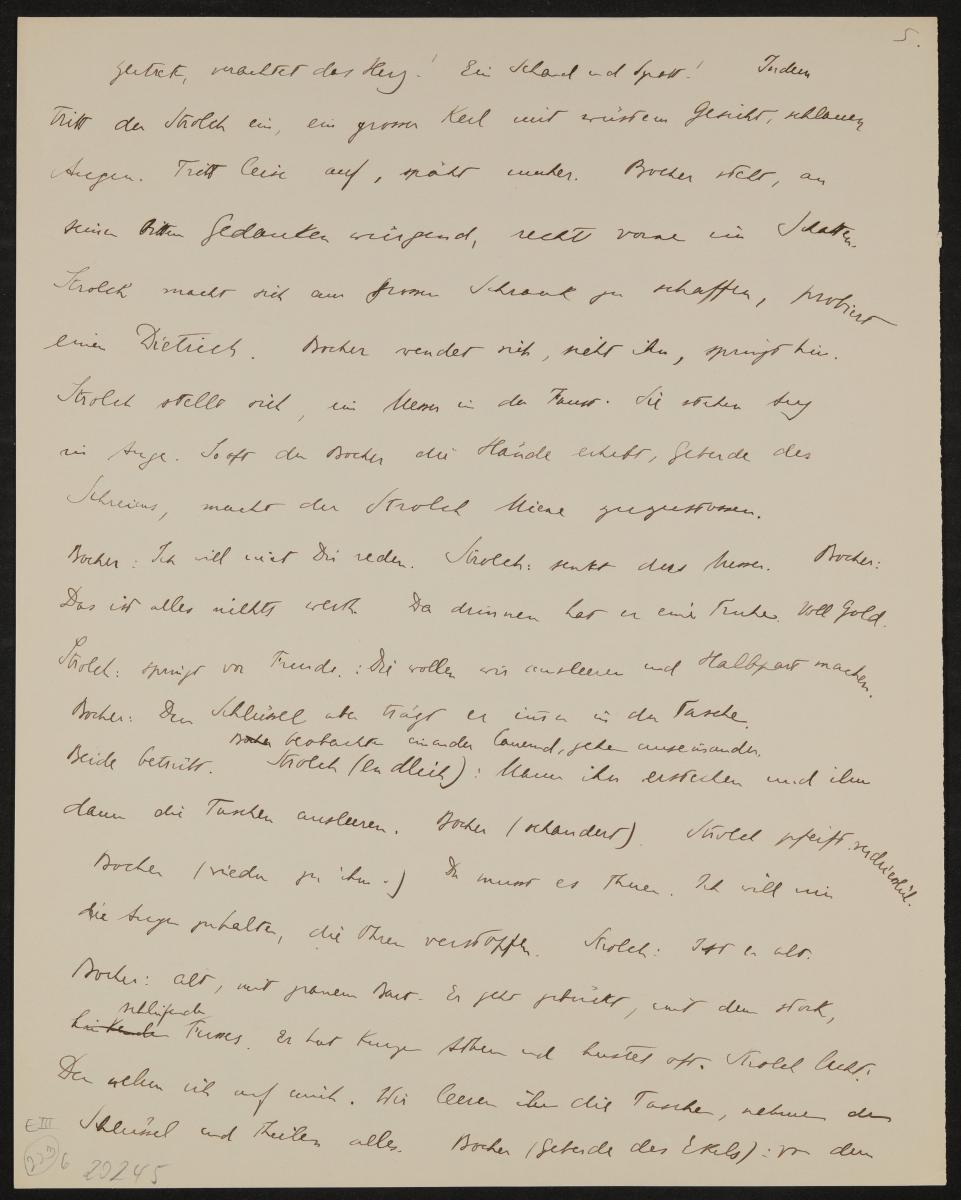 5.
zertret, verachtet das Herz! Ein Schand und Spott! Indem
tritt der Strolch ein, ein grosser Kerl mit wüstem Gesicht, schlauen
Augen. Tritt leise auf, späht umher. Bocher steht, an
seinen Gedanken würgend, rechts vorne im Schatten.
Strolch macht sich am grossen Schrank zu schaffen, probiert
einen Dietrich. Bocher wendet sich, sieht ihn, springt hin.
Strolch stellt sich, ein Messer in der Faust. Sie stehen Aug
in Auge. So oft der Bocher die Hände erhebt, Geberde des
Schreiens, macht der Strolch Miene zuzustossen.
Bocher: Ich will mit Dir reden. Strolch: senkt das Messer. Bocher:
Das ist alles nichts werth. Da drinnen hat er eine Truhe. Voll Gold.
Strolch: springt vor Freude.: Die wollen wir ausleeren und Halbpart machen.
Bocher: Den Schlüssel aber trägt er in der Tasche.
beobachten einander lauernd, gehen auseinander.
Beide betrübt. Strolch (endlich): Mann ihn erstechen und ihm
dann die Taschen ausleeren. Bocher (schaudert). Strolch pfeift verächtlich.
Bocher (wieder zu ihm.) Du musst es thuen. Ich will mir
die Augen zuhalten, die Ohren verstopfen. Strolch: Ist er alt.
Bocher: alt, mit grauem Bart. Er geht gebückt, mit dem Stock,
schleifenden
Fusses. Er hat kurzen Athem und hustet oft. Strolch lacht:
Den nehm ich auf mich. Wir leeren ihm die Taschen, nehmen den
Schlüssel und theilen alles. Bocher (Geberde des Ekels): vor dem
E III
223 6 20245